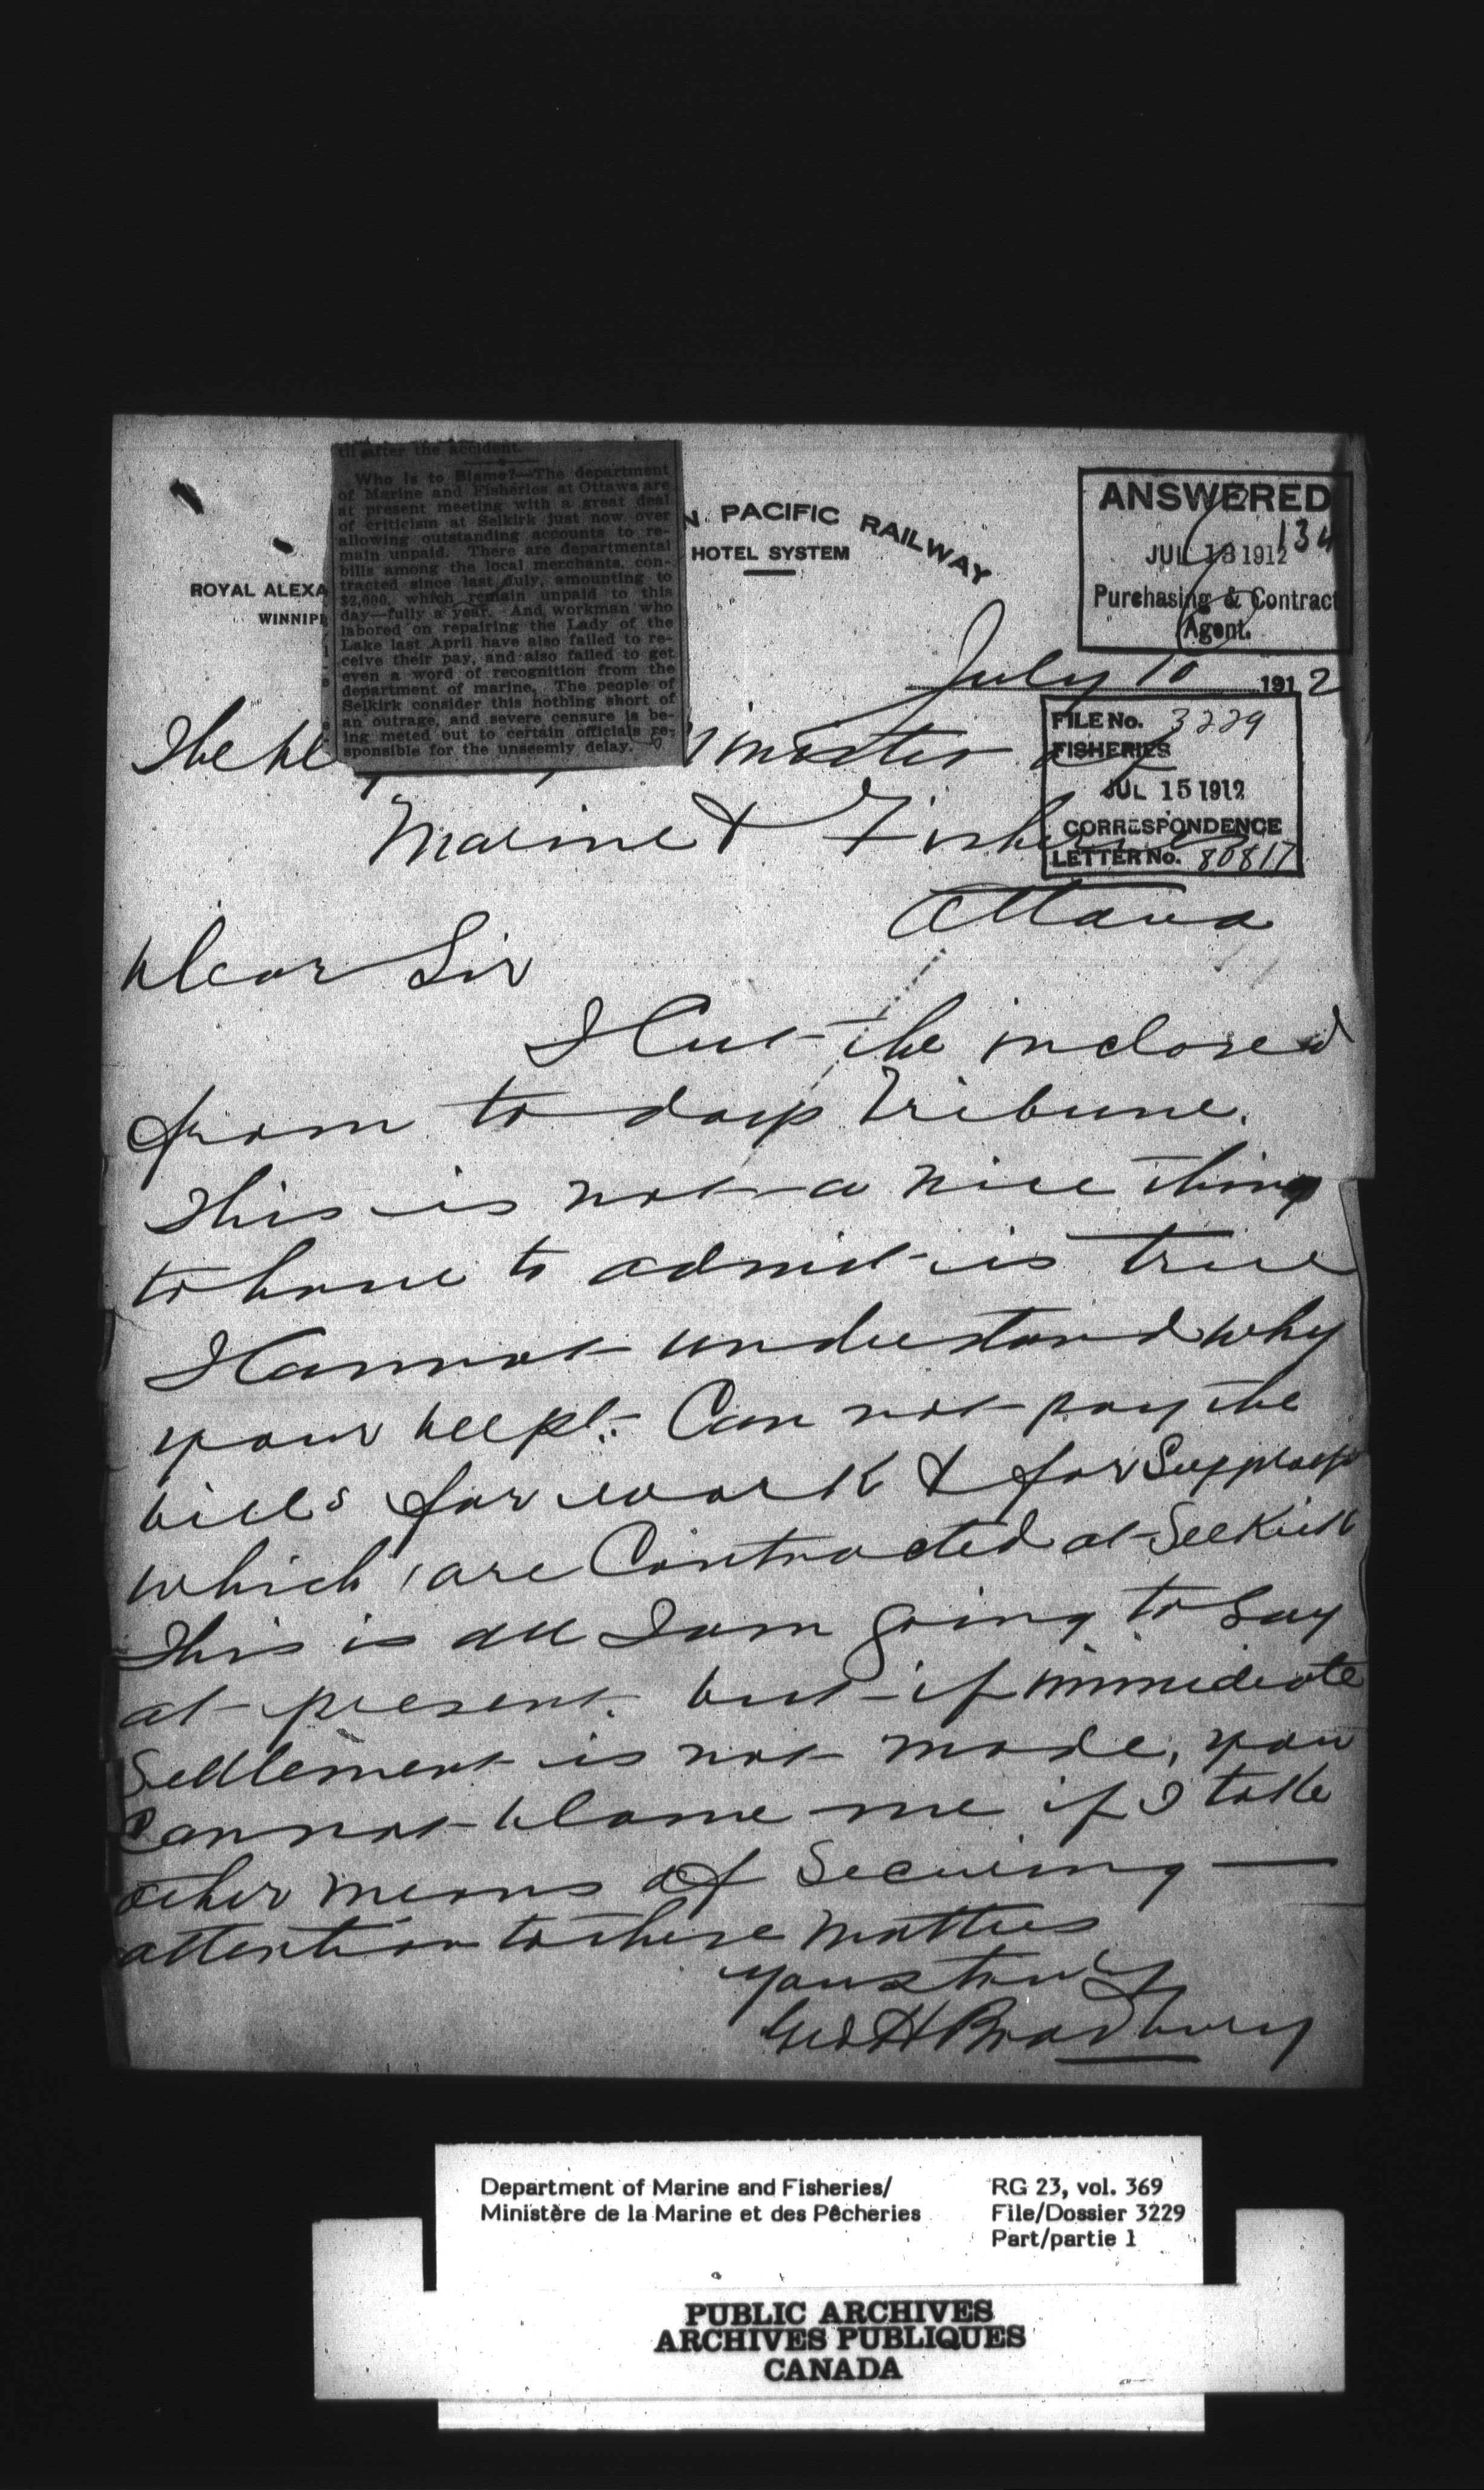 til after the accident.
Who Is to Blame?—The department
of Marine and Fisheries at Ottawa are
at present meeting with a great deal
of criticism at Selkirk just now over
allowing outstanding accounts to re-
main unpaid. There are departmental
bills among the local merchants, con-
tracted since last July, amounting to
$2,000, which remain unpaid to this
day—fully a year. And workman who
labored on repairing the Lady of the
Lake last April have also failed to re-
ceive their pay, and also failed to get
even a word of recognition from the
department of marine. The people of
Selkirk consider this nothing short of
an outrage, and severe censure is be-
ing meted out to certain officials re-
sponsible for the unseemly delay.
N PACIFIC RAILWAY
HOTEL SYSTEM
ROYAL ALEXA
WINNIP
ANSWERED
134
JUL 13 1912
Purchasing & Contract
Agent.
July 10 1912
FILE No. 3229
FISHERIES
JUL 15 1912
CORRESPONDENCE
LETTER No. 80817
The Minister of
Marine & Fisheries
Ottawa
Dear Sir
I Cut the inclosed
from to days Tribune.
This is not a nice thing
to have to admit is true
I Cannot understand why
your Dept. Can not pay the
bills for work & for Supplies
which are Contracted at Selkirk
This is all I am going to say
at present. but if immediate
Settlement is not made, you
Cannot blame me if I take
other means of Securing —
attention to these matters
Yours truly
Geo H Bradbury
Department of Marine and Fisheries/
Ministère de la Marine et des Pêcheries
RG 23, vol. 369
File/Dossier 3229
Part/partie 1
PUBLIC ARCHIVES
ARCHIVES PUBLIQUES
CANADA